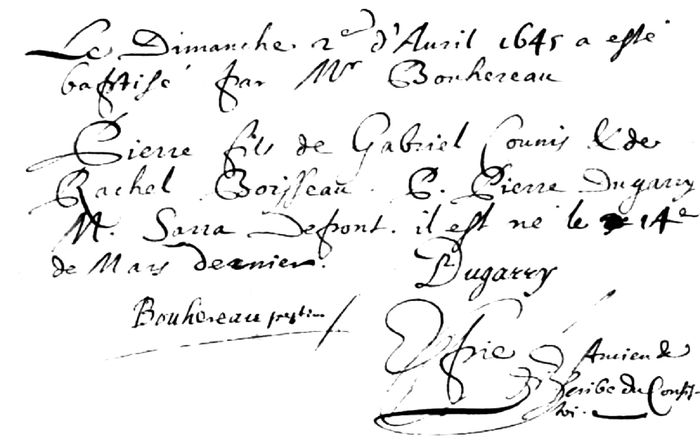 Le Dimanche 2e d'Auril 1645 a esté
baptisé par Mr Bouhereau
Pierre fils de Gabriel Counis & de
Rachel Boisseau. P. Pierre Dugarry
M. Sarra Defront. il est né le 14e
de Mars dernier. Dugarry
Bouhereau
Amien &
Scribe du Consis-
toi.